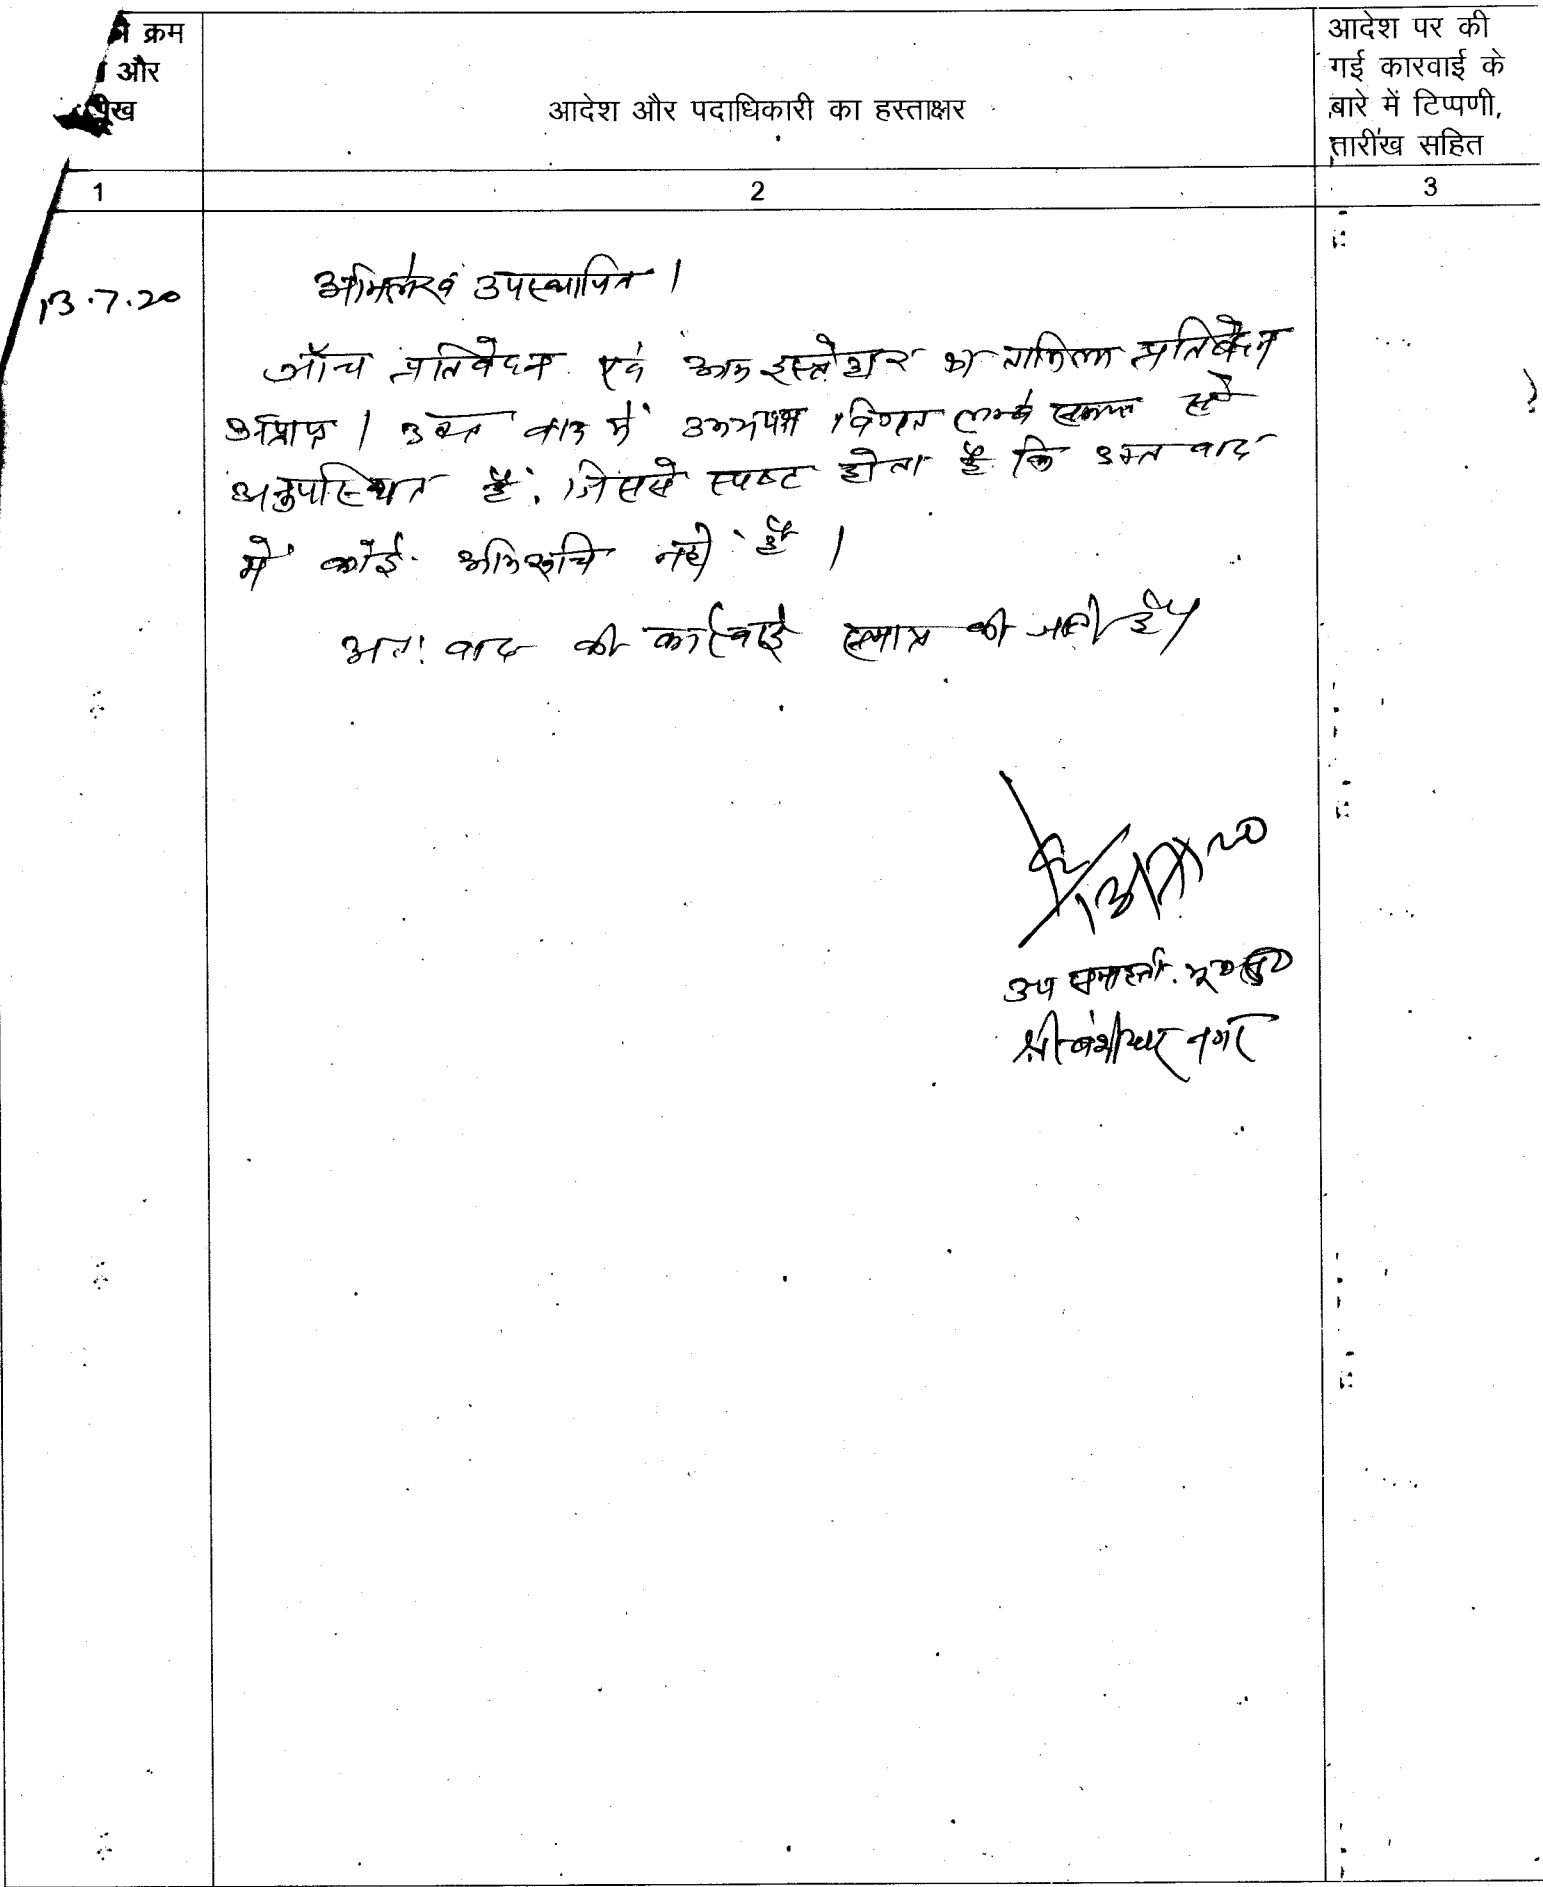 क्रम
और
आदेश और पदाधिकारी का हस्ताक्षर
आदेश पर की
गई कारवाई के
बारे में टिप्पणी,
तारीख सहित
1 2 3
13.7.20
अभिलेख उपस्थापित ।
जाँच प्रतिवेदन एवं आम इस्तेहार का तामिला प्रतिवेदन
अप्राप्त । उक्त वाद में उभयपक्ष विगत लम्बे समय से
अनुपस्थित हैं, जिससे स्पष्ट होता है कि उक्त वाद
में कोई अभिरूचि नहीं है ।
अतः वाद की कार्रवाई समाप्त की जाती है।
13/7/20
उप समाहर्ता भू० सु०
श्री बंशीधर नगर